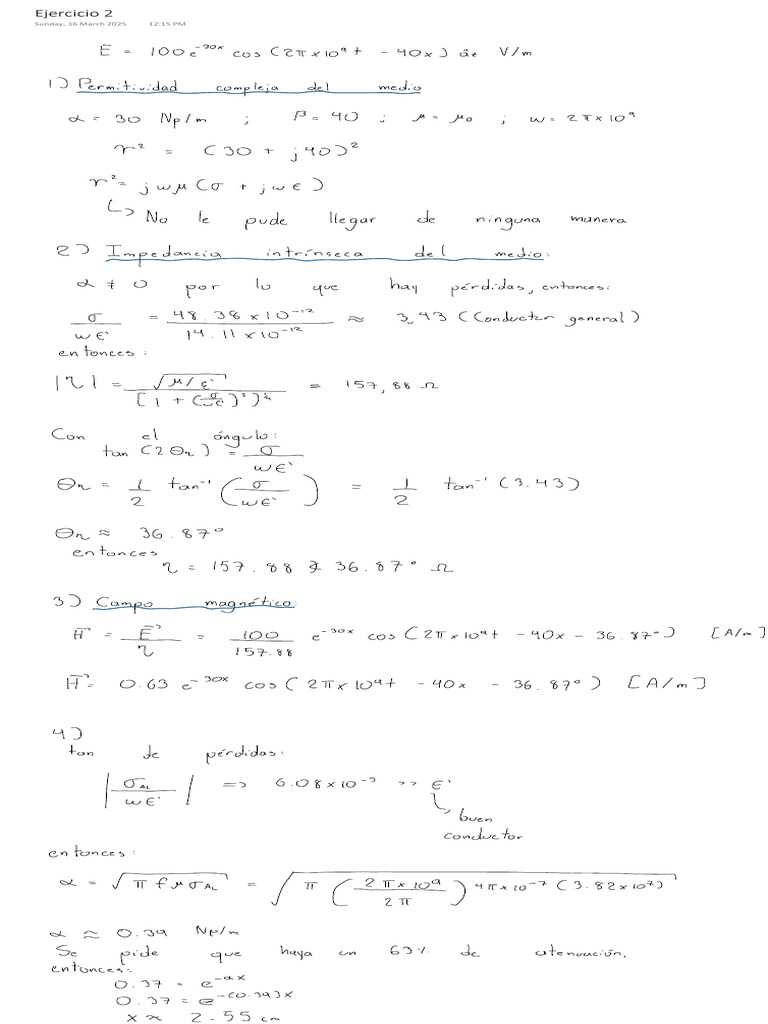 Ejercicio 2
Sunday, 16 March 2025 12:15 PM
E = 100 e^-30x cos (2π x 10^9 t - 40x) âz V/m
1) Permitividad compleja del medio
α = 30 Np/m ; β = 40 ; μ = μ₀ ; ω = 2π x 10^9
γ² = (30 + j40)²
γ² = jωμ(σ + jωε)
↳ No le pude llegar de ninguna manera
2) Impedancia intrínseca del medio:
α ≠ 0 por lo que hay pérdidas, entonces:
σ/ωε' = 48.38 x 10^-12 / 14.11 x 10^-12 ≈ 3,43 (Conductor general)
entonces:
|η| = √(μ/ε') / [1 + (σ/ωε')²]^¼ = 157,88 Ω
Con el ángulo:
tan (2θη) = σ/ωε'
θη = 1/2 tan⁻¹ (σ/ωε') = 1/2 tan⁻¹ (3.43)
θη ≈ 36.87°
entonces
η = 157.88 ∡ 36.87° Ω
3) Campo magnético:
H = E/η = 100/157.88 e^-30x cos (2π x 10^9 t - 40x - 36.87°) [A/m]
H = 0.63 e^-30x cos (2π x 10^9 t - 40x - 36.87°) [A/m]
4)
tan de pérdidas:
|σAL/ωε'| => 6.08 x 10^-3 >> ε'
↳ buen
conductor
entonces:
α = √(π f μ σAL) = √(π (2π x 10^9 / 2π) 4π x 10^-7 (3.82 x 10^7))
α ≈ 0.39 Np/m
Se pide que haya un 63% de atenuación,
entonces:
0.37 = e^-αx
0.37 = e^-(0.39)x
x ≈ 2.55 cm